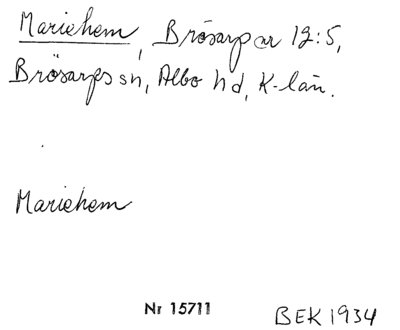 Mariehem, Brösarp ar 12:5,
Brösarps sn, Albo hd, K-län.
Mariehem
Nr 15711
BEK 1934